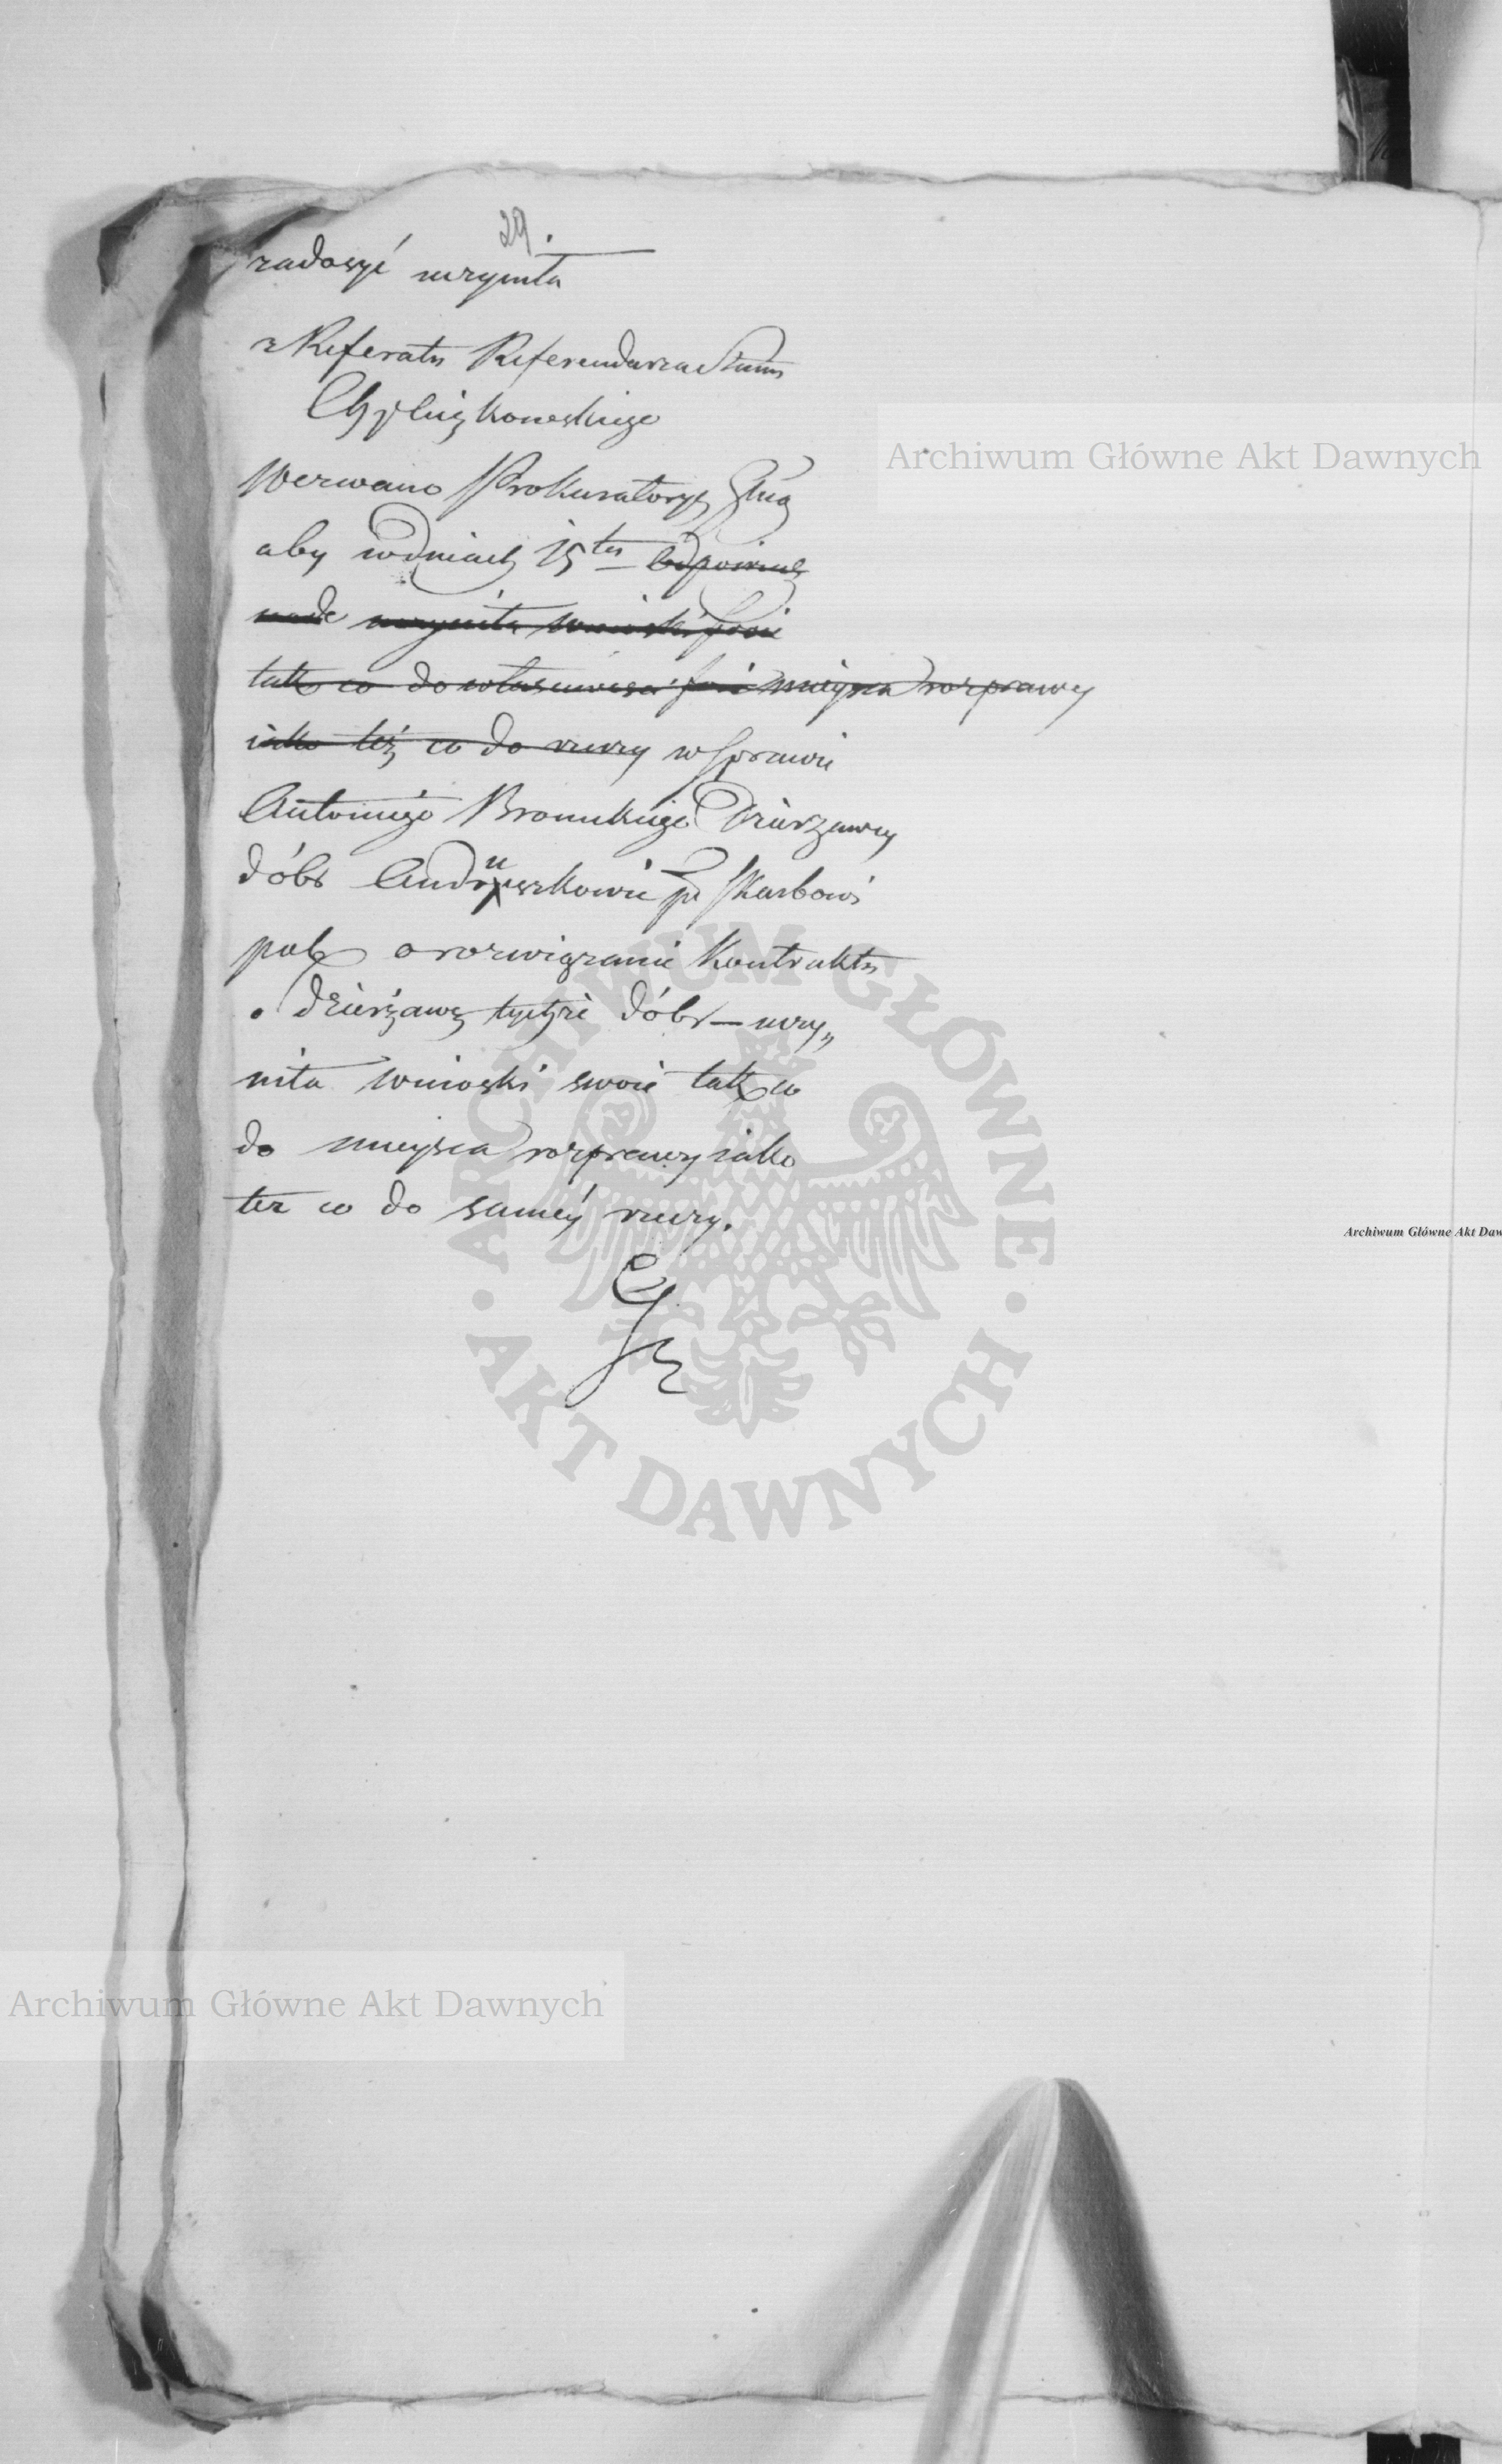 29.
zadosyć uczyniła
z Referatu Referendarza Stanu
Chyliczkowskiego
Wezwano Prokuratoryę Glną
aby w dniach 15tu
uczyniła wnioski swoie
tak co do właściwego miejsca rozprawy
iako też co do rzeczy w Sprawie
Antoniego Bronickiego Dzierżawcy
dóbr Andruszkowic pko Skarbowi
pub o rozwiązanie Kontraktu
o dzierżawę tychże dóbr — uczy„
niła wnioski swoie tak co
do mieysca rozprawy iako
też co do saméy rzeczy.
Archiwum Główne Akt Dawnych
ARCHIWUM GŁÓWNE · AKT DAWNYCH ·
Archiwum Główne Akt Daw
Archiwum Główne Akt Dawnych